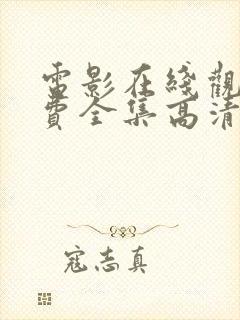 電影在綫觀
費全集高清
寇志真